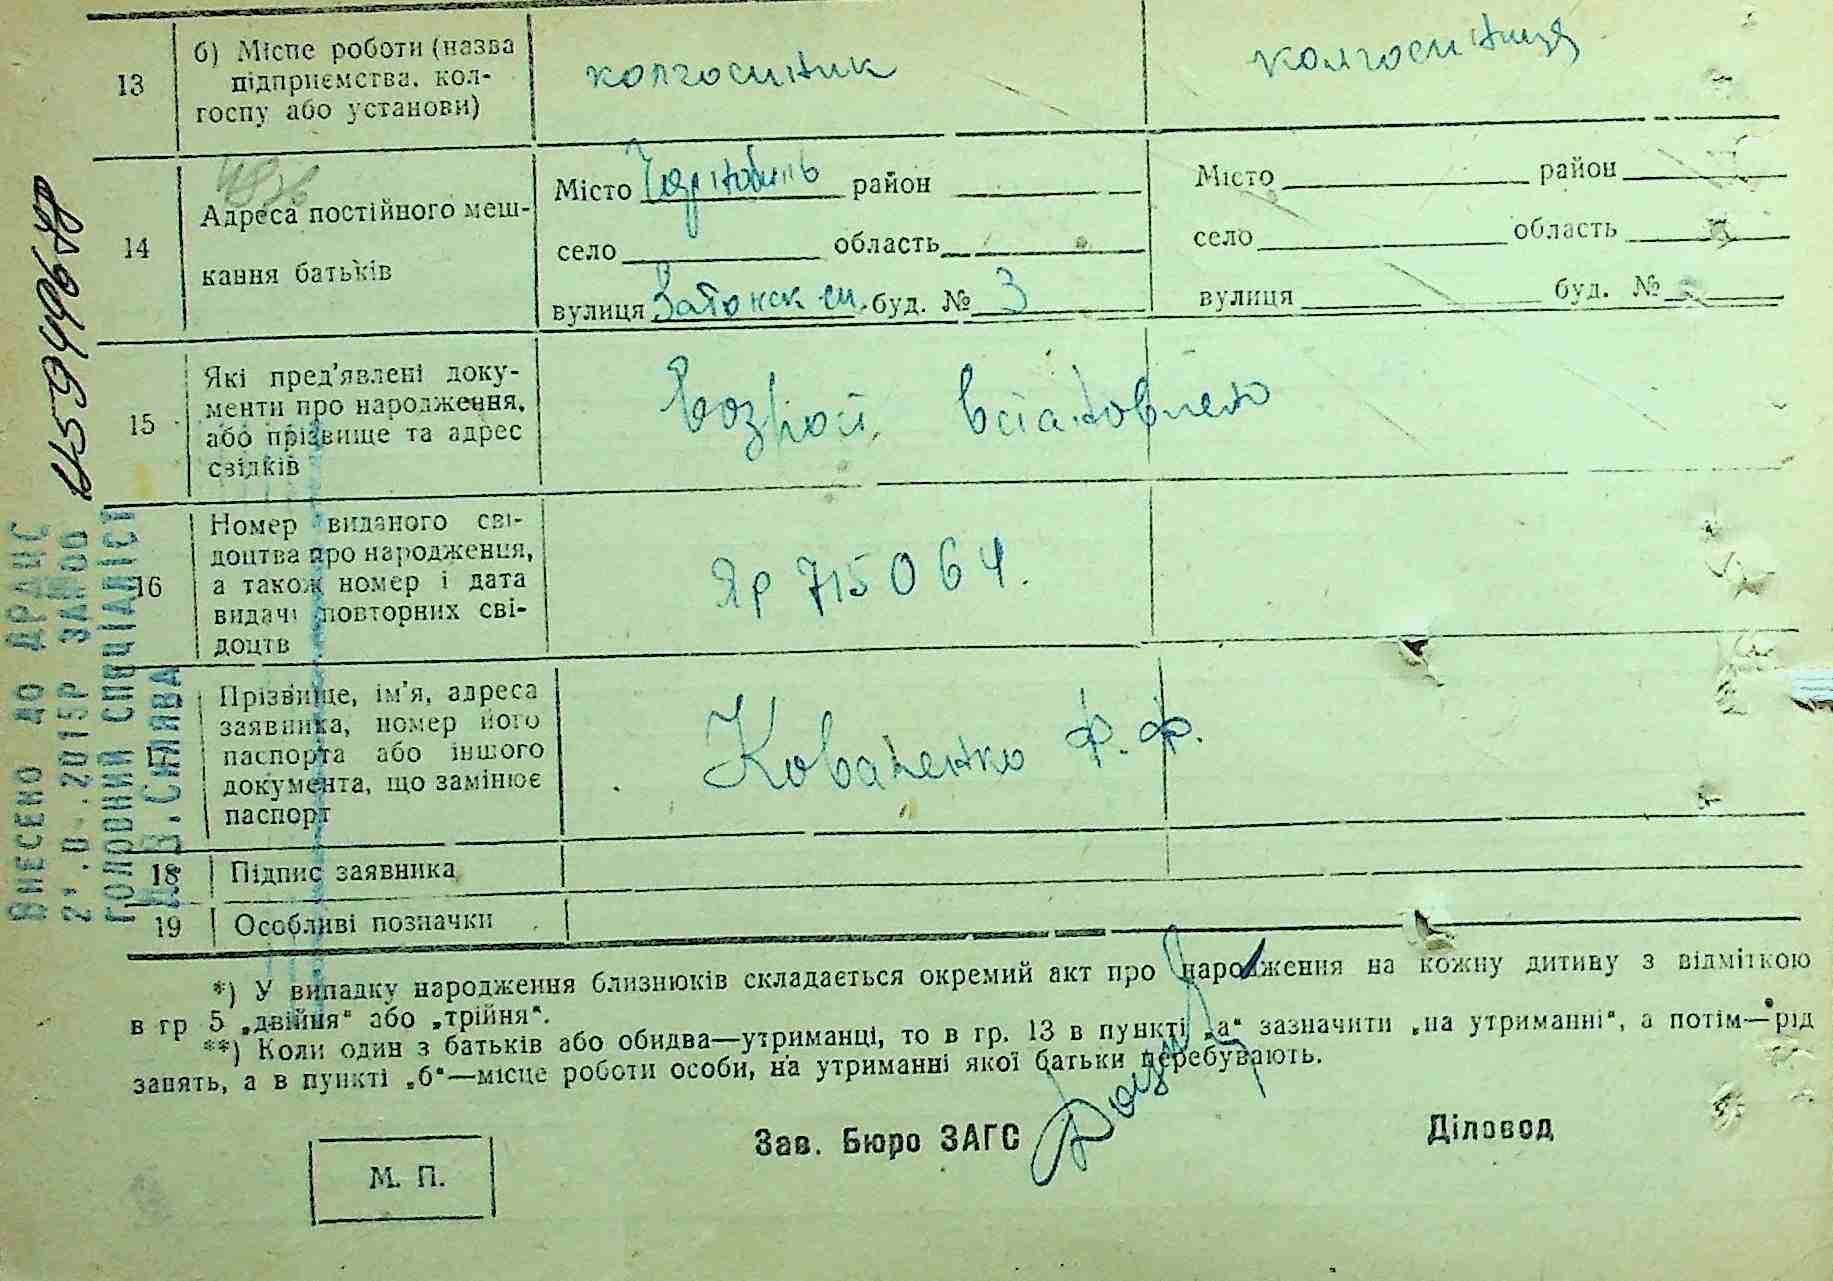 13
б) Місце роботи (назва
підприємства, кол-
госпу або установи)
колгоспник
колгоспниця
14
Адреса постійного меш-
кання батьків
Місто Чорнобиль район
село область
вулиця Затонск ст. буд. № 3
Місто район
село область
вулиця буд. №
15
Які пред'явлені доку-
менти про народження,
або прізвище та адрес
свідків
Возрост встановлено
16
Номер виданого сві-
доцтва про народження,
а також номер і дата
видачі повторних сві-
доцтв
Яр 715064.
17
Прізвище, ім'я, адреса
заявника, номер його
паспорта або іншого
документа, що замінює
паспорт
Коваленко Ф. Ф.
18
Підпис заявника
19
Особливі позначки
*) У випадку народження близнюків складається окремий акт про народження на кожну дитину з відміткою
в гр 5 „двійня“ або „трійня“.
**) Коли один з батьків або обидва—утриманці, то в гр. 13 в пункті „а“ зазначити „на утриманні“, а потім—рід
занять, а в пункті „б“—місце роботи особи, на утриманні якої батьки перебувають.
Зав. Бюро ЗАГС
Діловод
М. П.
ВНЕСЕНО ДО ДРАЦС
2015Р ЗА №00
ГОЛОВНИЙ СПЕЦІАЛІСТ